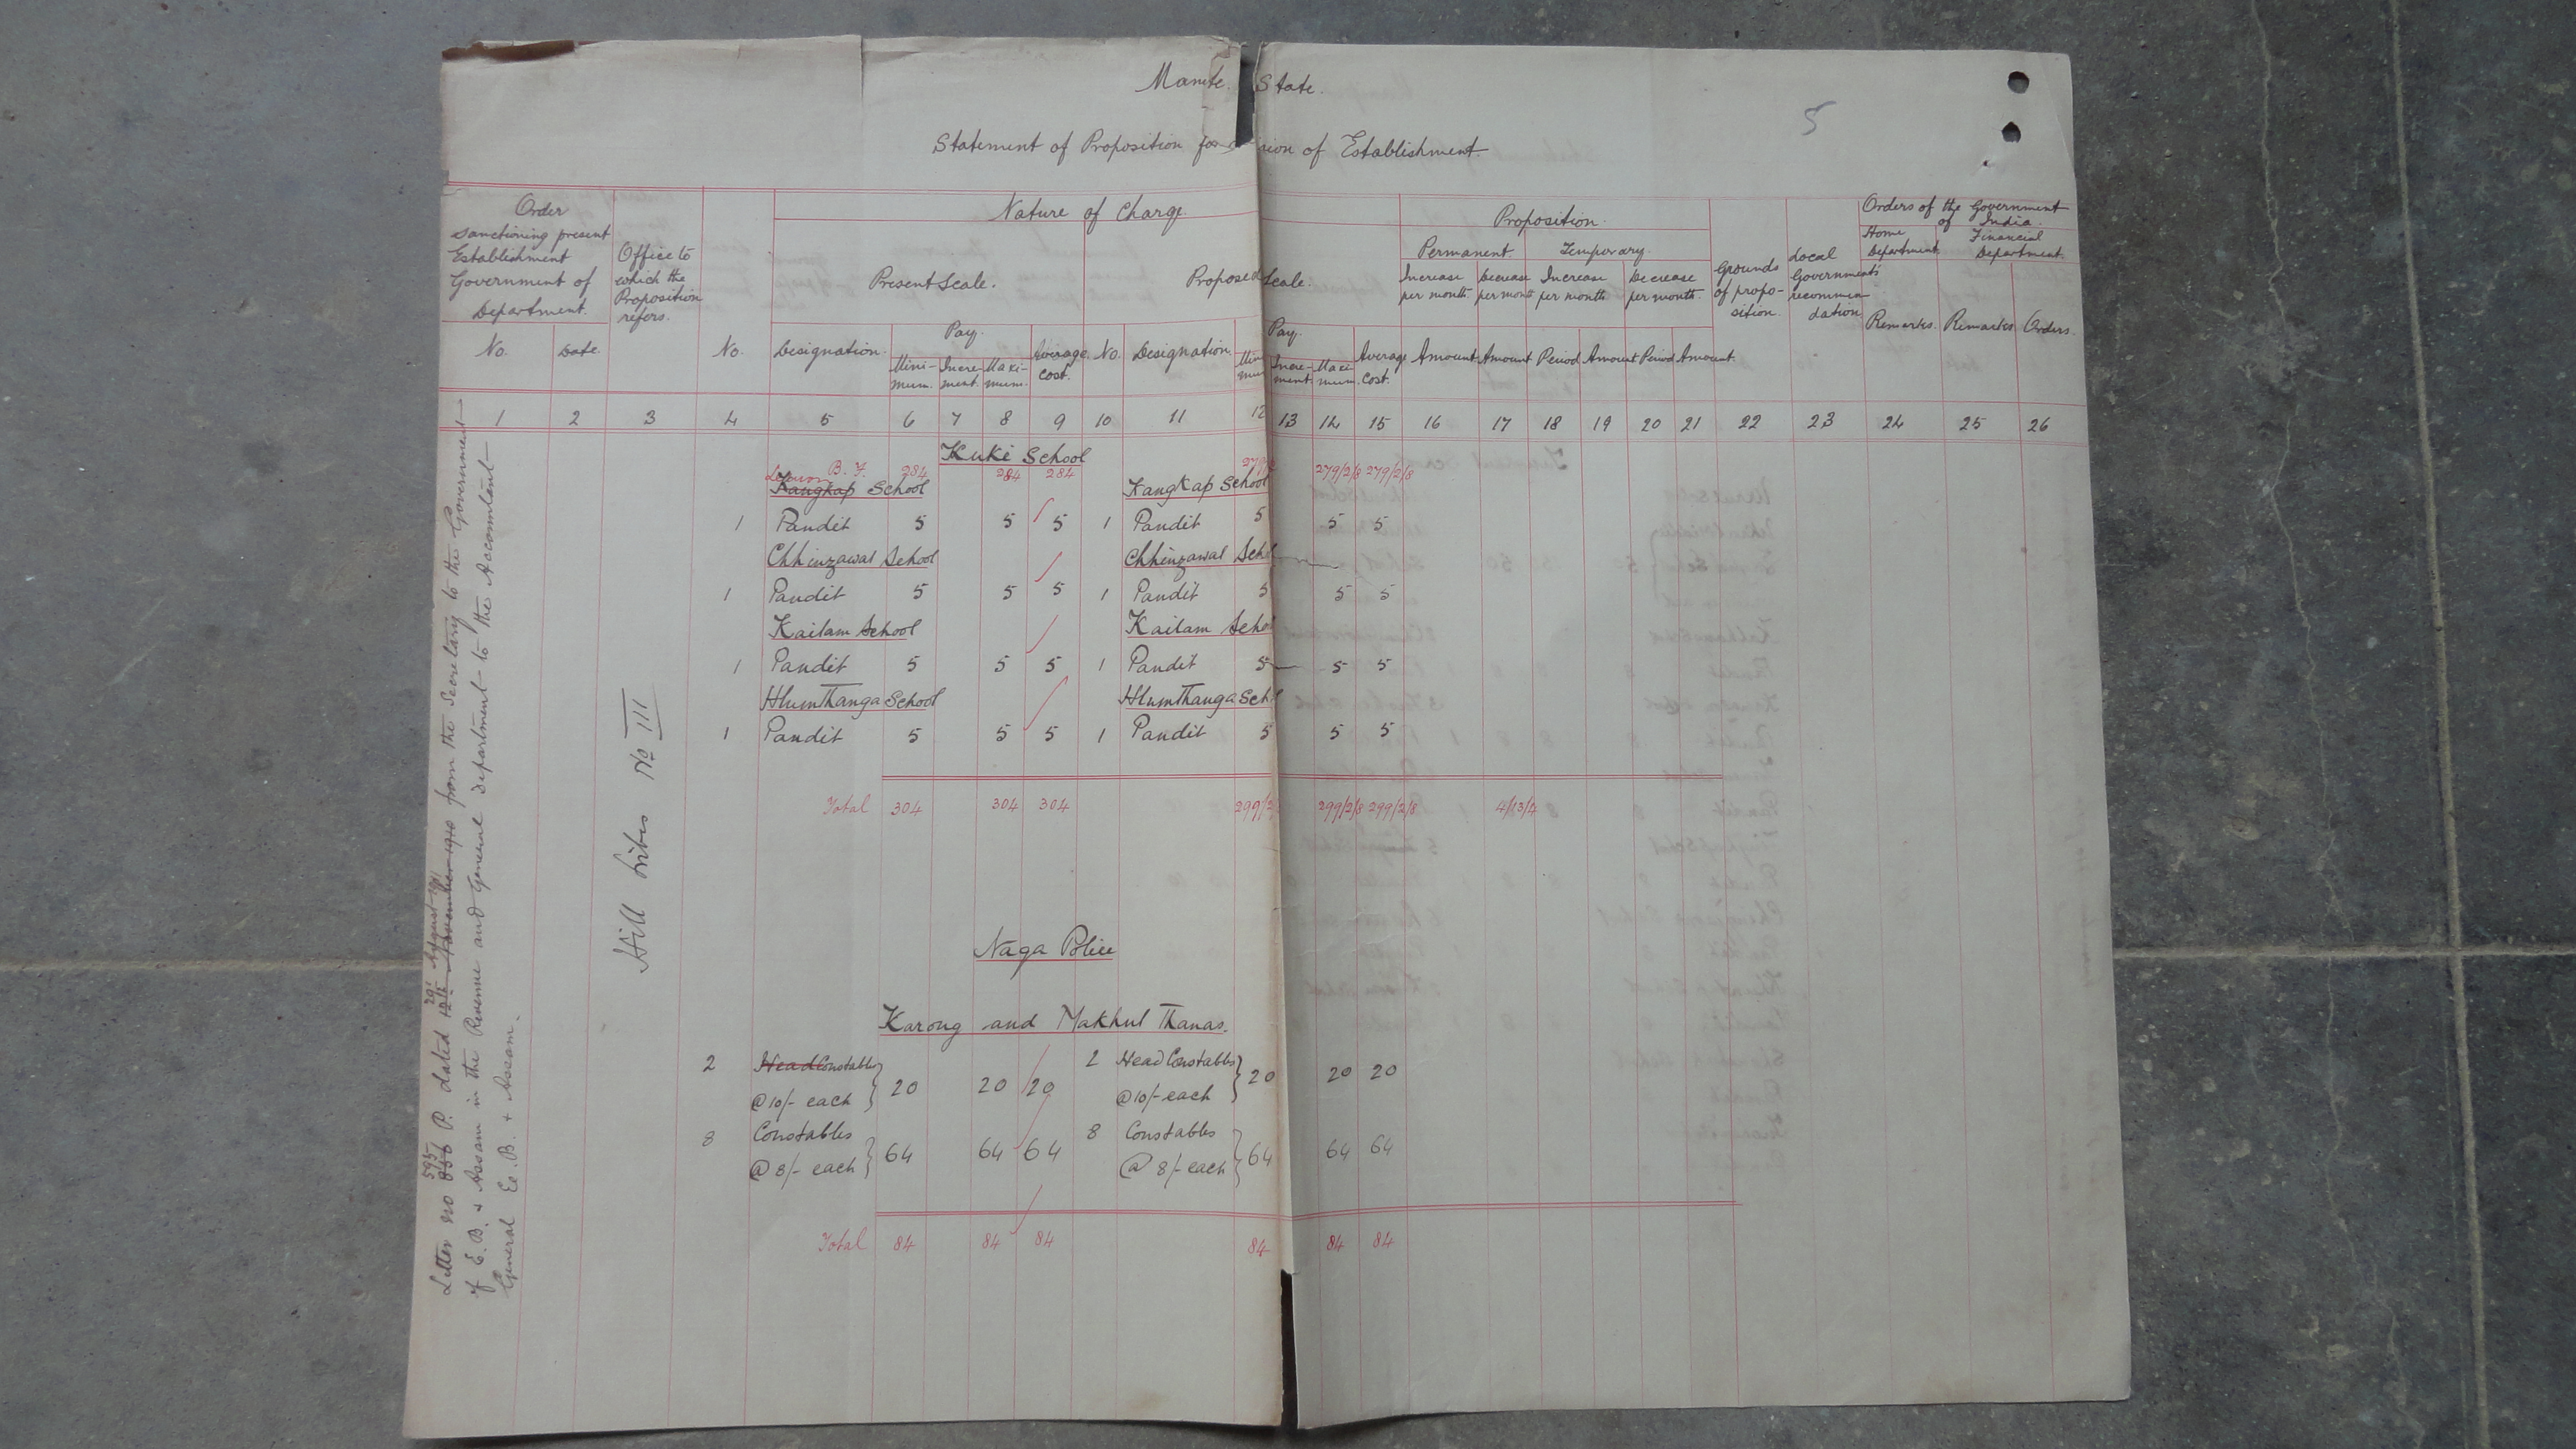 5
State.
Statement of Proposition for sion of Establishment.
Order sanctioning present Establishment Government of Department.
Office to which the Proposition refers.
Nature of Charge
Proposition.
Grounds of proposition.
Local Government's recommendation
Orders of the Government of India.
Present Scale. Proposed Scale.
Permanent. Temporary.
Home Department. Financial Department.
Increase per month. Decrease per month Increase per month. Decrease per month.
Pay. Pay.
No. Date. No. Designation. Minimum. Increment. Maximum. Average Cost. No. Designation. Increment Maximum. Average Cost. Amount Amount Period Amount Period Amount. Remarks. Remarks Orders.
1 2 3 4 5 6 7 8 9 10 11 12 13 14 15 16 17 18 19 20 21 22 23 24 25 26
Kuki School
B. F. 284 284 284 279/2/8 279/2/8
Kangkap School Kangkap School
1 Pandit 5 5 5 1 Pandit 5 5 5
Chhinzawal School Chhinzawal Scho
1 Pandit 5 5 5 1 Pandit 5 5 5
Kailam School Kailam Scho
1 Pandit 5 5 5 1 Pandit 5 5 5
HlumThanga School HlumThanga Sch
1 Pandit 5 5 5 1 Pandit 5 5 5
Total 304 304 304 299/2 299/2/8 299/2/8 4/13/4
Naga Police
Karong and Makhul Thanas.
2 Head Constables @ 10/- each } 20 20 20 2 Head Constables @ 10/- each } 20 20 20
8 Constables @ 8/- each } 64 64 64 8 Constables @ 8/- each } 64 64 64
Total 84 84 84 84 84 84
Hill tribes No III
595 29 August 1911
Letter no 856 P. dated 12th November 1910 from the Secretary to the Government
of E.B. & Assam in the Revenue and General department to the Accountant
General E.B. & Assam.